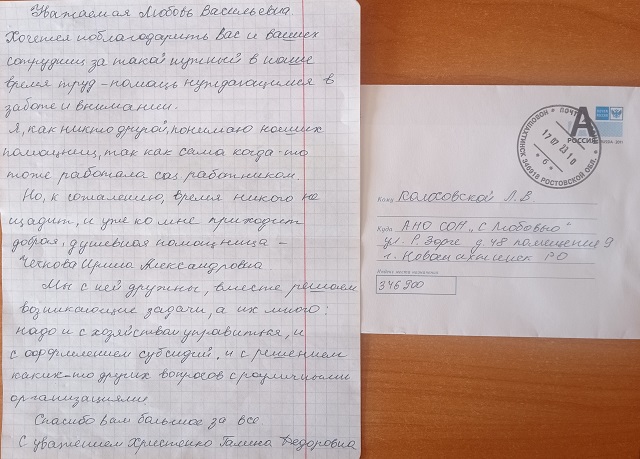 Уважаемая Любовь Васильевна.
Хочется поблагодарить Вас и ваших
сотрудниц за такой нужный в наше
время труд – помощь нуждающимся в
заботе и внимании.
Я, как никто другой, понимаю наших
помощниц, так как сама когда-то
тоже работала соц. работником.
Но, к сожалению, время никого не
щадит, и уже ко мне приходит
добрая, душевная помощница –
Чепкова Ирина Александровна.
Мы с ней дружны, вместе решаем
возникающие задачи, а их много:
надо и с хозяйством управиться, и
с оформлением субсидий, и с решением
каких-то других вопросов с различными
организациями.
Спасибо вам большое за все.
С уважением Христенко Галина Федоровна
А
РОССИЯ
ПОЧТА
НОВОШАХТИНСК 346918 РОСТОВСКОЙ ОБЛ.
17 07 23 10
б
Кому Колосовской Л.В.
Куда АНО СОН „С Любовью"
ул. Р. Зорге д. 48 помещение 9
г. Новошахтинск РО
346900